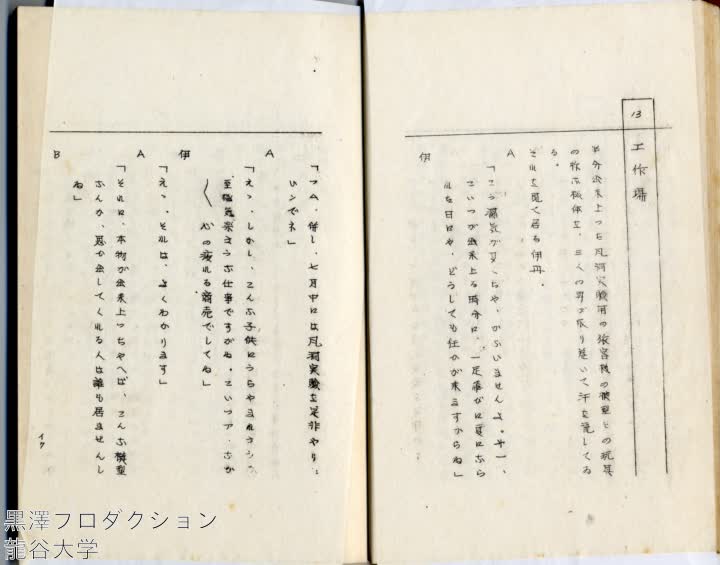 13 工作場
半分出来上つた風洞実験用の旅客機の模型との玩具
の様な機体を、三人の男が取り巻いて汗を流してゐ
る。
それを見て居る伊丹。
A
「こう湿気が多くちや、かなひませんよ。第一、
こいつが出来上る時分に、一足落がに夏になら
れた日にや、どうしても狂ひが来ますからね」
伊
「フム、併し、七月中には風洞実験を是非やり度
いンでネ」
A
「えゝ、しかし、こんな子供にうらやまれさうな
至極気楽さうな仕事ですがね。こいつア、なか
〱心の疲れる商売でしてね」
伊
「えゝ、それは、よくわかります」
A
B
「それに、本物が出来上つちやへば、こんな模型
なんか、思ひ出してくれる人は誰も居ませんし
ね」
イク
黒澤プロダクション
龍谷大学